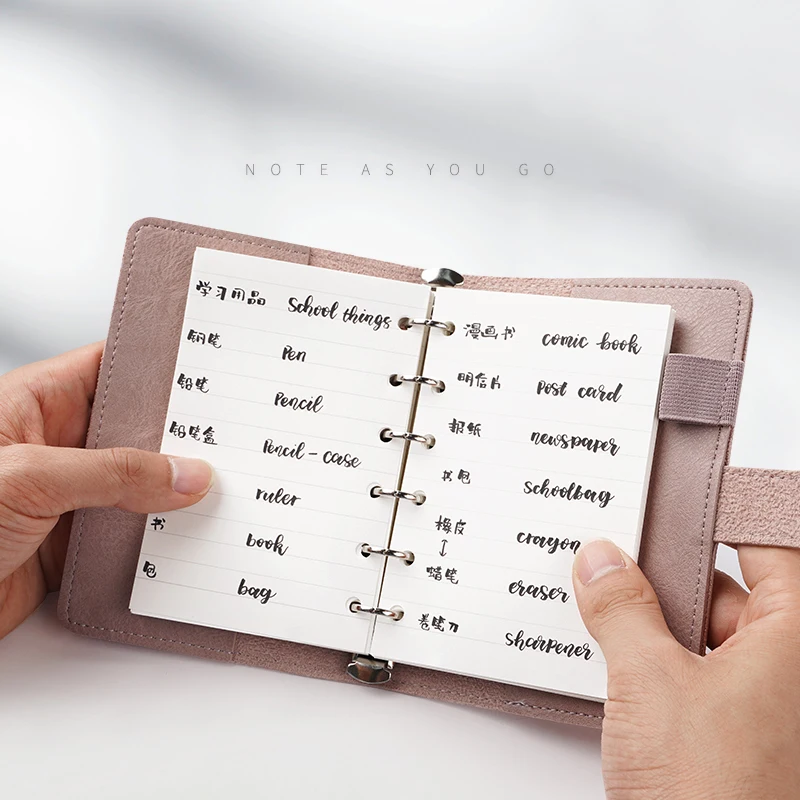 NOTE AS YOU GO
学习用品 School things
钢笔 pen
铅笔 pencil
铅笔盒 pencil-case
ruler
书 book
包 bag
漫画书 comic book
明信片 post card
报纸 newspaper
书包 schoolbag
橡皮 crayon
↕
蜡笔 eraser
卷笔刀 sharpener